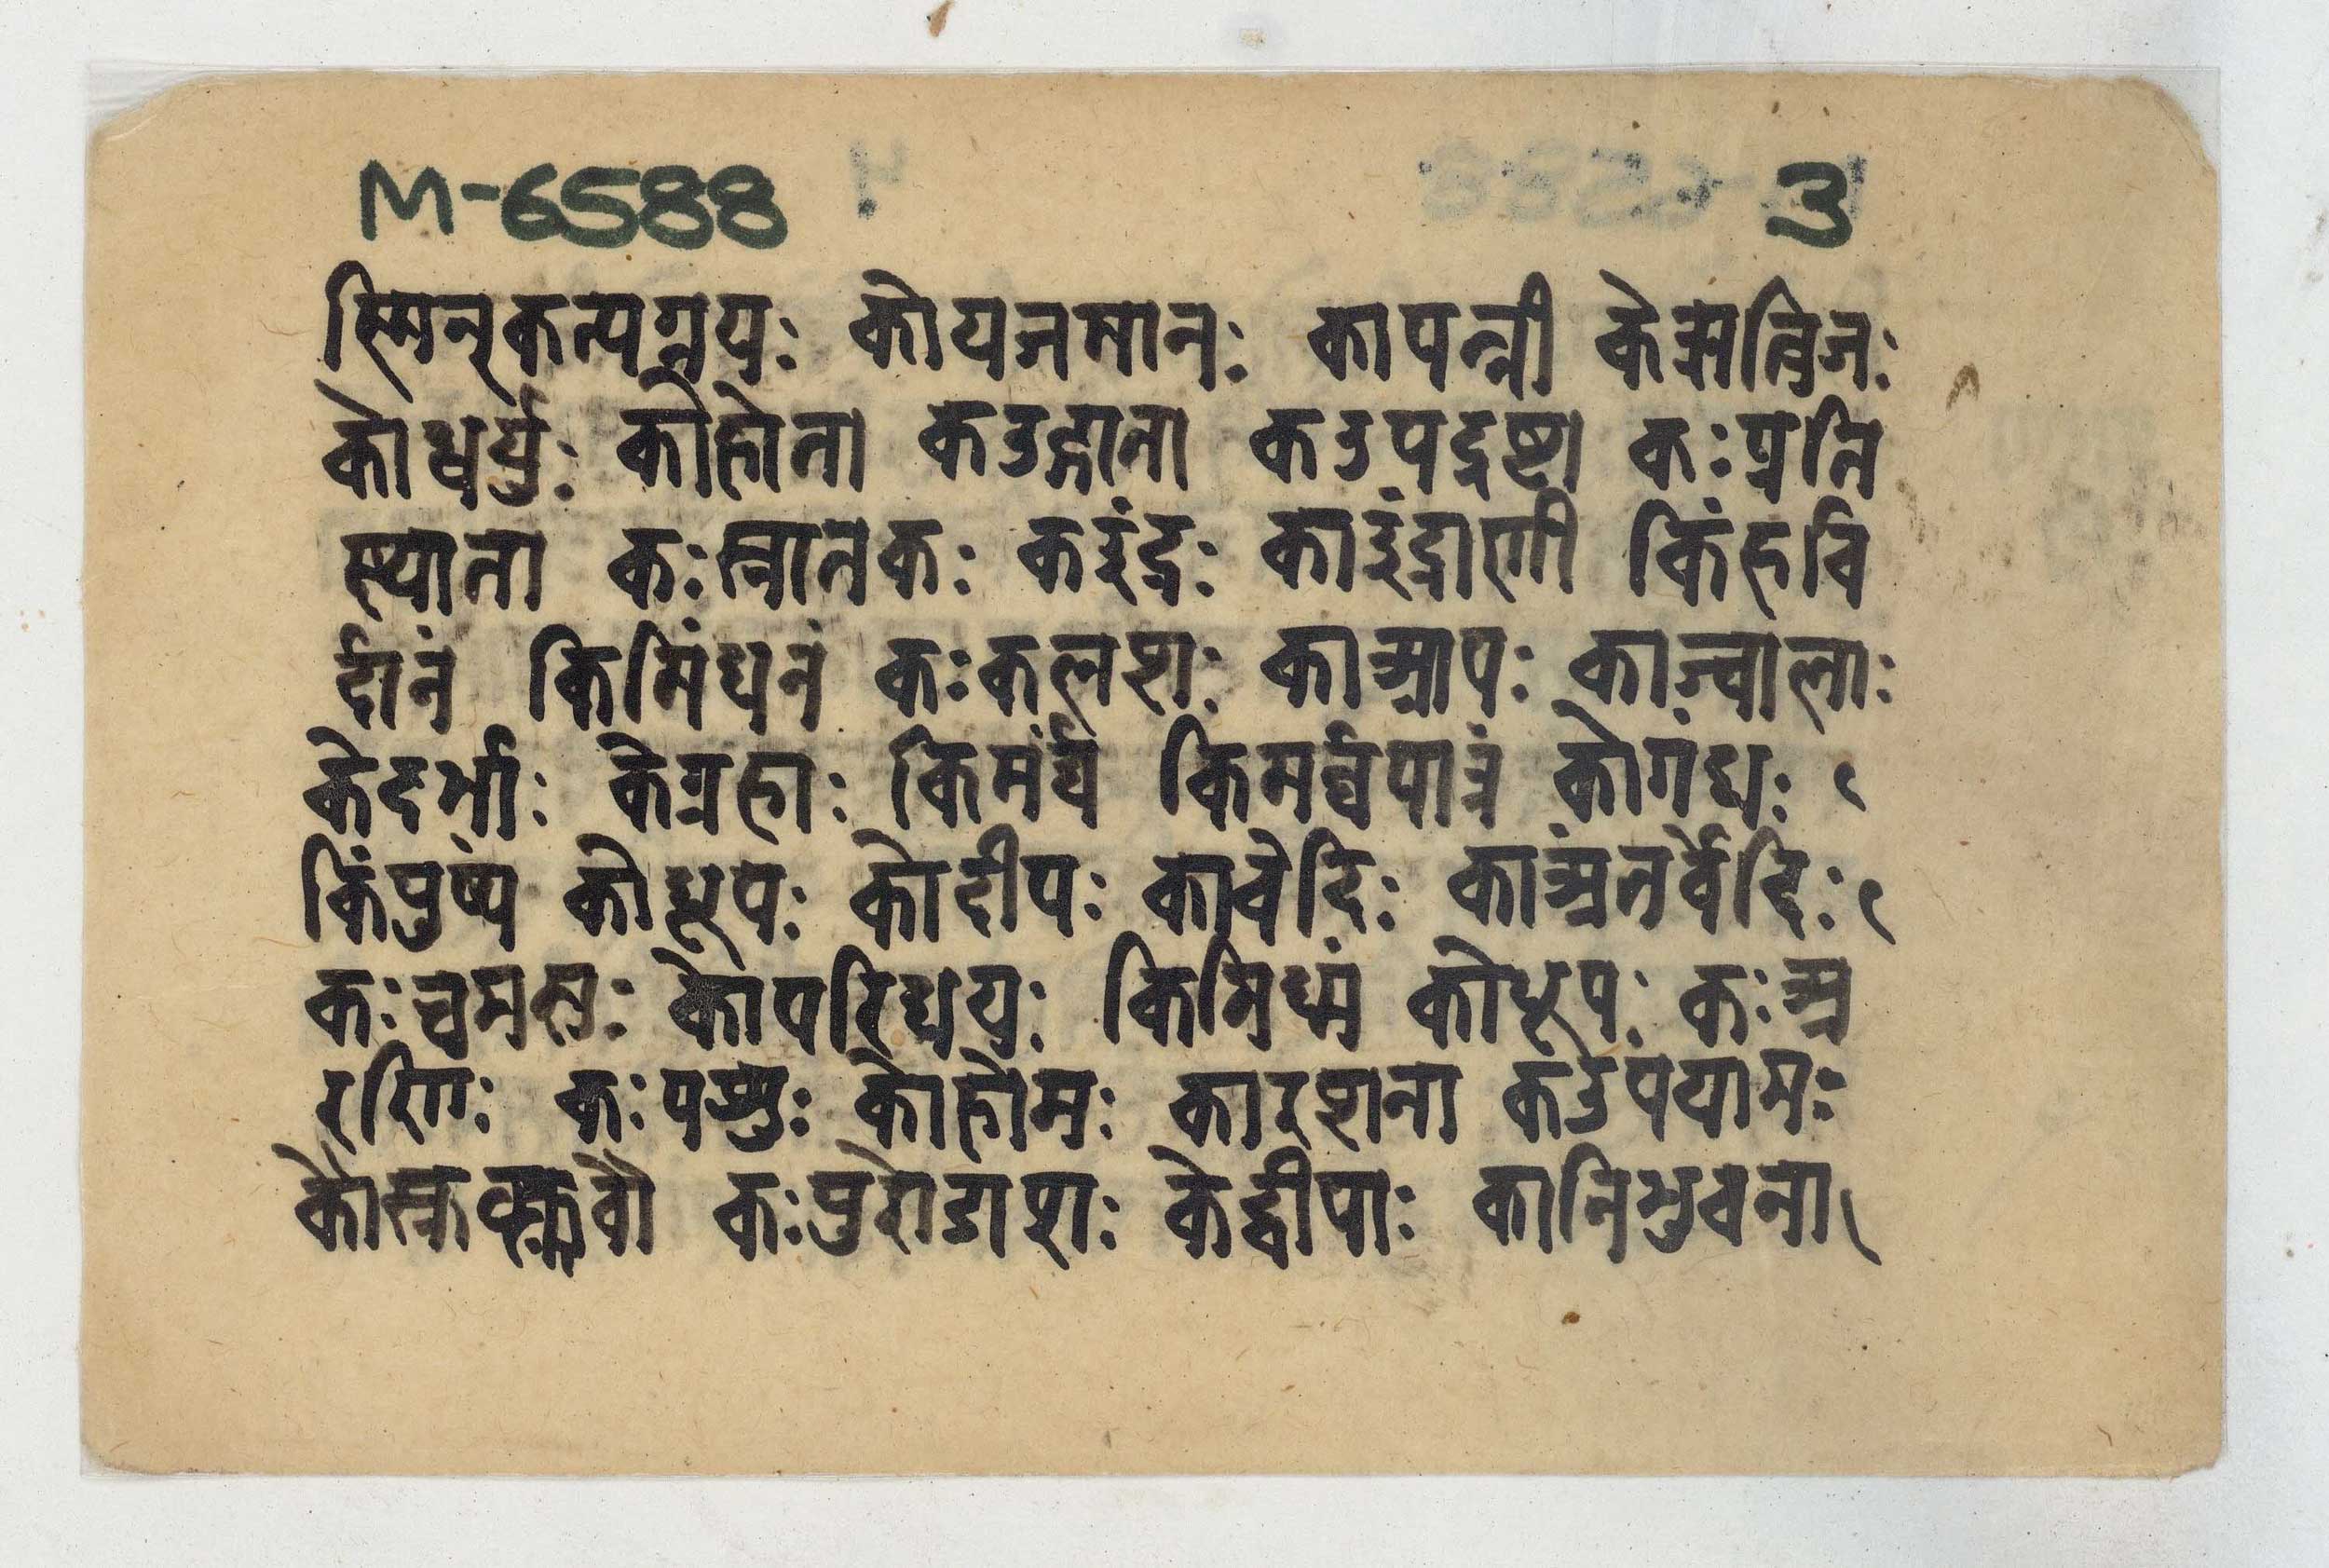 M-6588 3
स्मिन्कत्यग्नयः कोयजमानः कापत्नी केऋत्विजः
कोध्वर्युः कोहोता कउद्गाता कउपद्रष्टा कःप्रति
स्थाता कःस्नातकः कइंद्रः काइंद्राणी किंहवि
र्दानं किमिंधनं कःकलशः काआपः काज्वालाः
केदर्भाः केग्रहाः किमर्घ्यं किमर्घ्यपात्रं कोगंधः
किंपुष्पं कोधूपः कोदीपः कावेदिः काअंतर्वेदिः
कःचमसः कोपरिधयः किमिध्मं कोधूपः कःअ
रणिः कःपशुः कोहोमः कारशना कउपयामः
कौस्रुक्स्रुवौ कःपुरोडाशः केद्वीपाः कानिभुवना